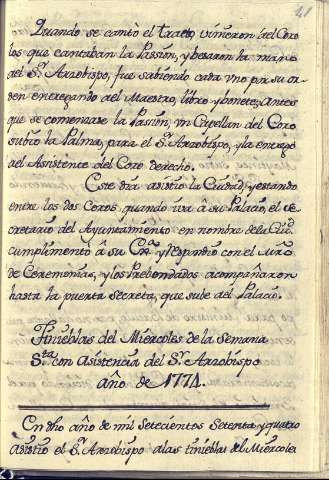 21
Quando se cantò el tracto, vinieron del Coro
los que cantaban la Passión, y besaron la mano
del Sr. Arzobispo, fue subiendo cada uno por su or-
den entregando al Maestro, libro y bonete; Antes
que se comenzase la Pasión, un Capellan del Coro
subio la Palma, para el Sr. Arzobispo, y la entregò
al Asistente del Coro derecho.
Este dia asistio la Ciudad, y estando
entre los dos Coros, quando iva â su Palacio, el se-
cretario del Ayuntamiento en nombre de la Ciud.
cumplimentò â su y respondio con el Mro.
de Ceremonias, y los Prebendados acompañaron
hasta la puerta Secreta, que sube al Palacio.
Tinieblas del Miercoles de la Semana
Sta. con Asistencia del Sr. Arzobispo
año de 1774.
En dho año de mil Setecientos Setenta y quatro
asistio el Sr. Arzobispo a las tinieblas del Miercoles